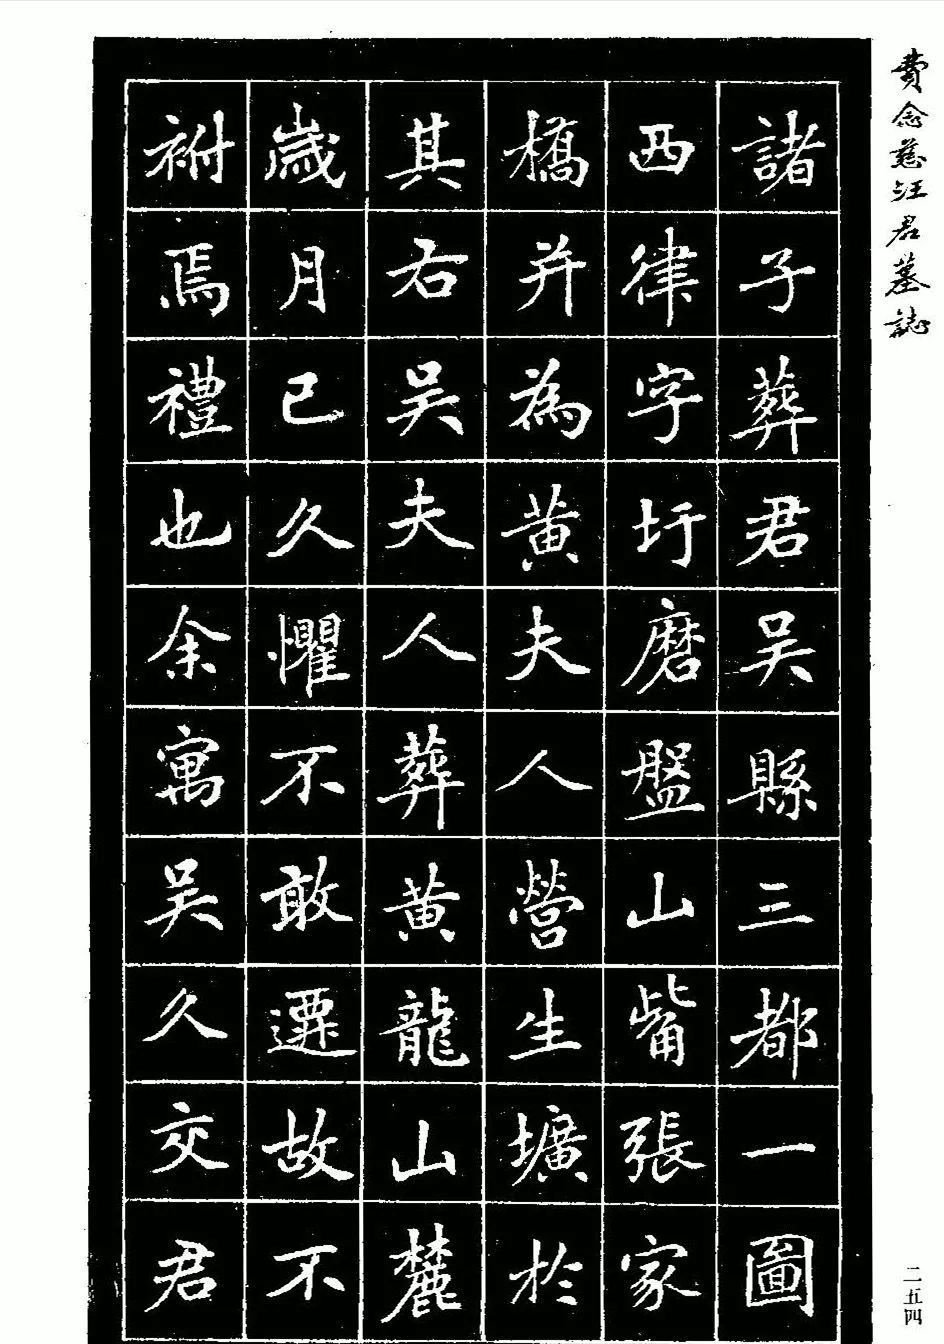 費念慈汪君墓誌
諸子葬君吴縣三都一圖
西律字圩磨盤山觜張家
橋并為黄夫人營生壙於
其右吴夫人葬黄龍山麓
歲月已久懼不敢遷故不
祔焉禮也余寓吴久交君
二五四